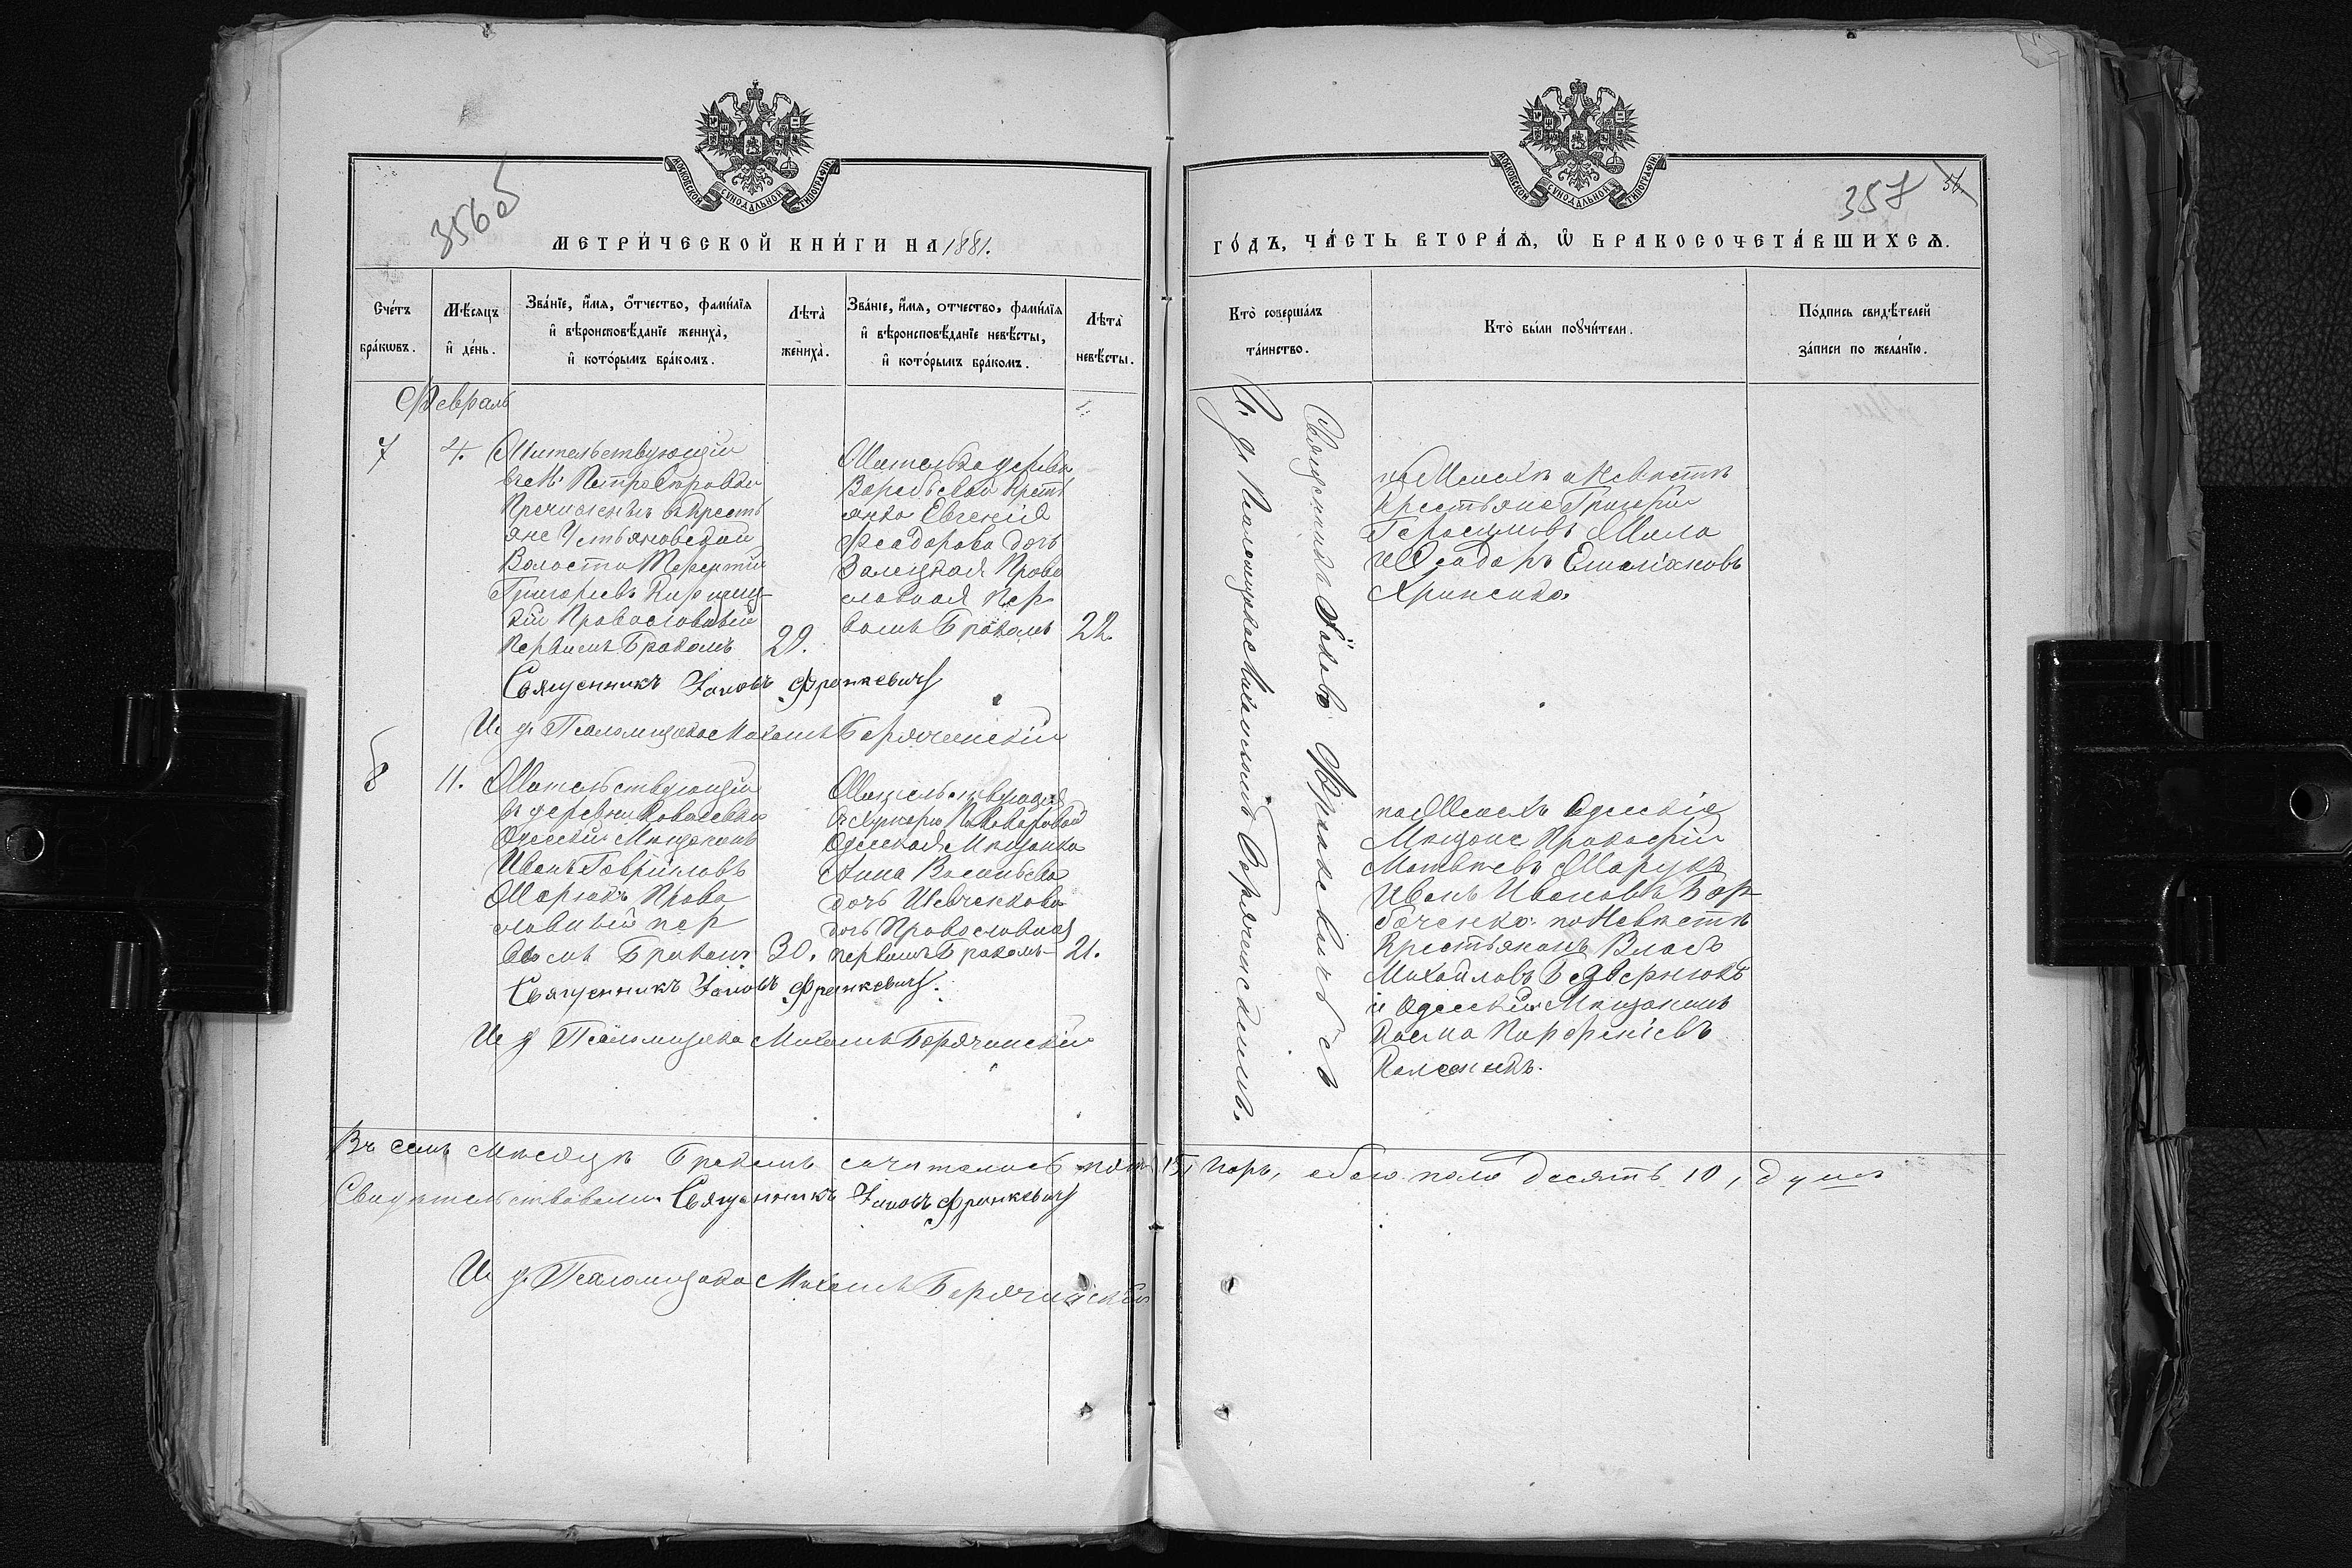 МОСКОВСКОЙ СѴНОДАЛЬНОЙ ТИПОГРАФІИ
356 об
МЕТРИ́ЧЕСКОЙ КНИ́ГИ НА 1881.
Сче́тъ бра́кѡвъ.
Мѣ́сяцъ и҆ де́нь.
Зва́нїе, и҆́мя, ѻ҆́тчество, фами́лїя
и҆ вѣроисповѣ́данїе жениха̀,
и҆ кото́рымъ бра́комъ.
Лѣта̀ жениха̀.
Зва́нїе, и҆́мя, отчество, фами́лїя
и҆ вѣроисповѣ́данїе невѣ́сты,
и҆ кото́рымъ бра́комъ.
Лѣта̀ невѣ́сты.
Февраль
7
4.
Жительствующій
въ с. Петровка
Причисленъ къ крестья
яне
Волости Терентій
Григорьевъ
кій Православный
Первымъ Бракомъ
29.
Жителька деревни
Крестьянка
Евгенія
Феодорова дочь
Залецкая Право
славная пер
вымъ Бракомъ
22.
Священникъ Іаковъ Френкевичъ
И. д. Псаломщика Михаилъ Борячинскій
8
11.
Жительствующій
въ деревни Ковалевки
Одесскій Мещанинъ
Иванъ Гавриловъ
Марюкъ Право
славный пер
вымъ Бракомъ
30.
Жительствующая
Одесская Мещанка
Анна Васильева
дочь Шевченкова
дочь Православная
первымъ Бракомъ
21.
Священникъ Іаковъ Френкевичъ.
И. д. Псаломщика Михаилъ Борячинскій
Въ семъ Месяцѣ Бракомъ сочиталось пять
Свидетельствовали Священникъ Іаковъ Френкевичъ
И. д. Псаломщика Михаилъ Борячинскій
МОСКОВСКОЙ СѴНОДАЛЬНОЙ ТИПОГРАФІИ
357
ГО́ДЪ, ЧА́СТЬ ВТОРА́Ѧ, Ѡ҆ БРАКОСОЧЕТА́ВШИХСѦ.
Кто̀ соверша́лъ та́инство.
Кто̀ бы́ли поꙋчи́тели.
По́дпись свидѣ́телей за́писи по жела́нїю.
Священникъ Іаковъ Френкевичъ съ
И. д. Псаломщика Михаиломъ Борячинскимъ.
по Женихѣ и Невестѣ
Крестьяне Григорій
Герасимовъ Мила
и Феодоръ Емельяновъ
по Женихѣ Одесскія
Мещане Прокофій
Матвеевъ Марукъ
Иванъ Ивановъ Бор
боченко. по Невестѣ
Крестьянинъ Власъ
Михайловъ Бедвернюкъ
и Одесскій Мещанинъ
Косма Парфеніевъ
5, паръ, обоего пола десять 10, душъ